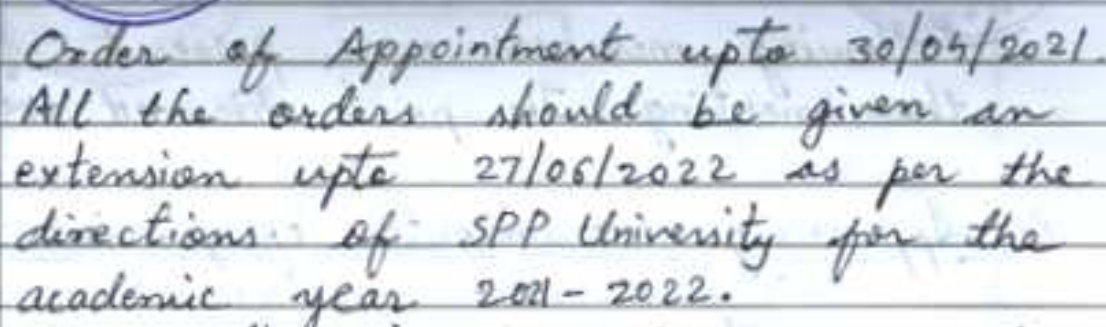 Order of Appointment upto 30/04/2021.
All the orders should be given an
extension upto 27/06/2022 as per the
directions of SPP University for the
academic year 2021-2022.